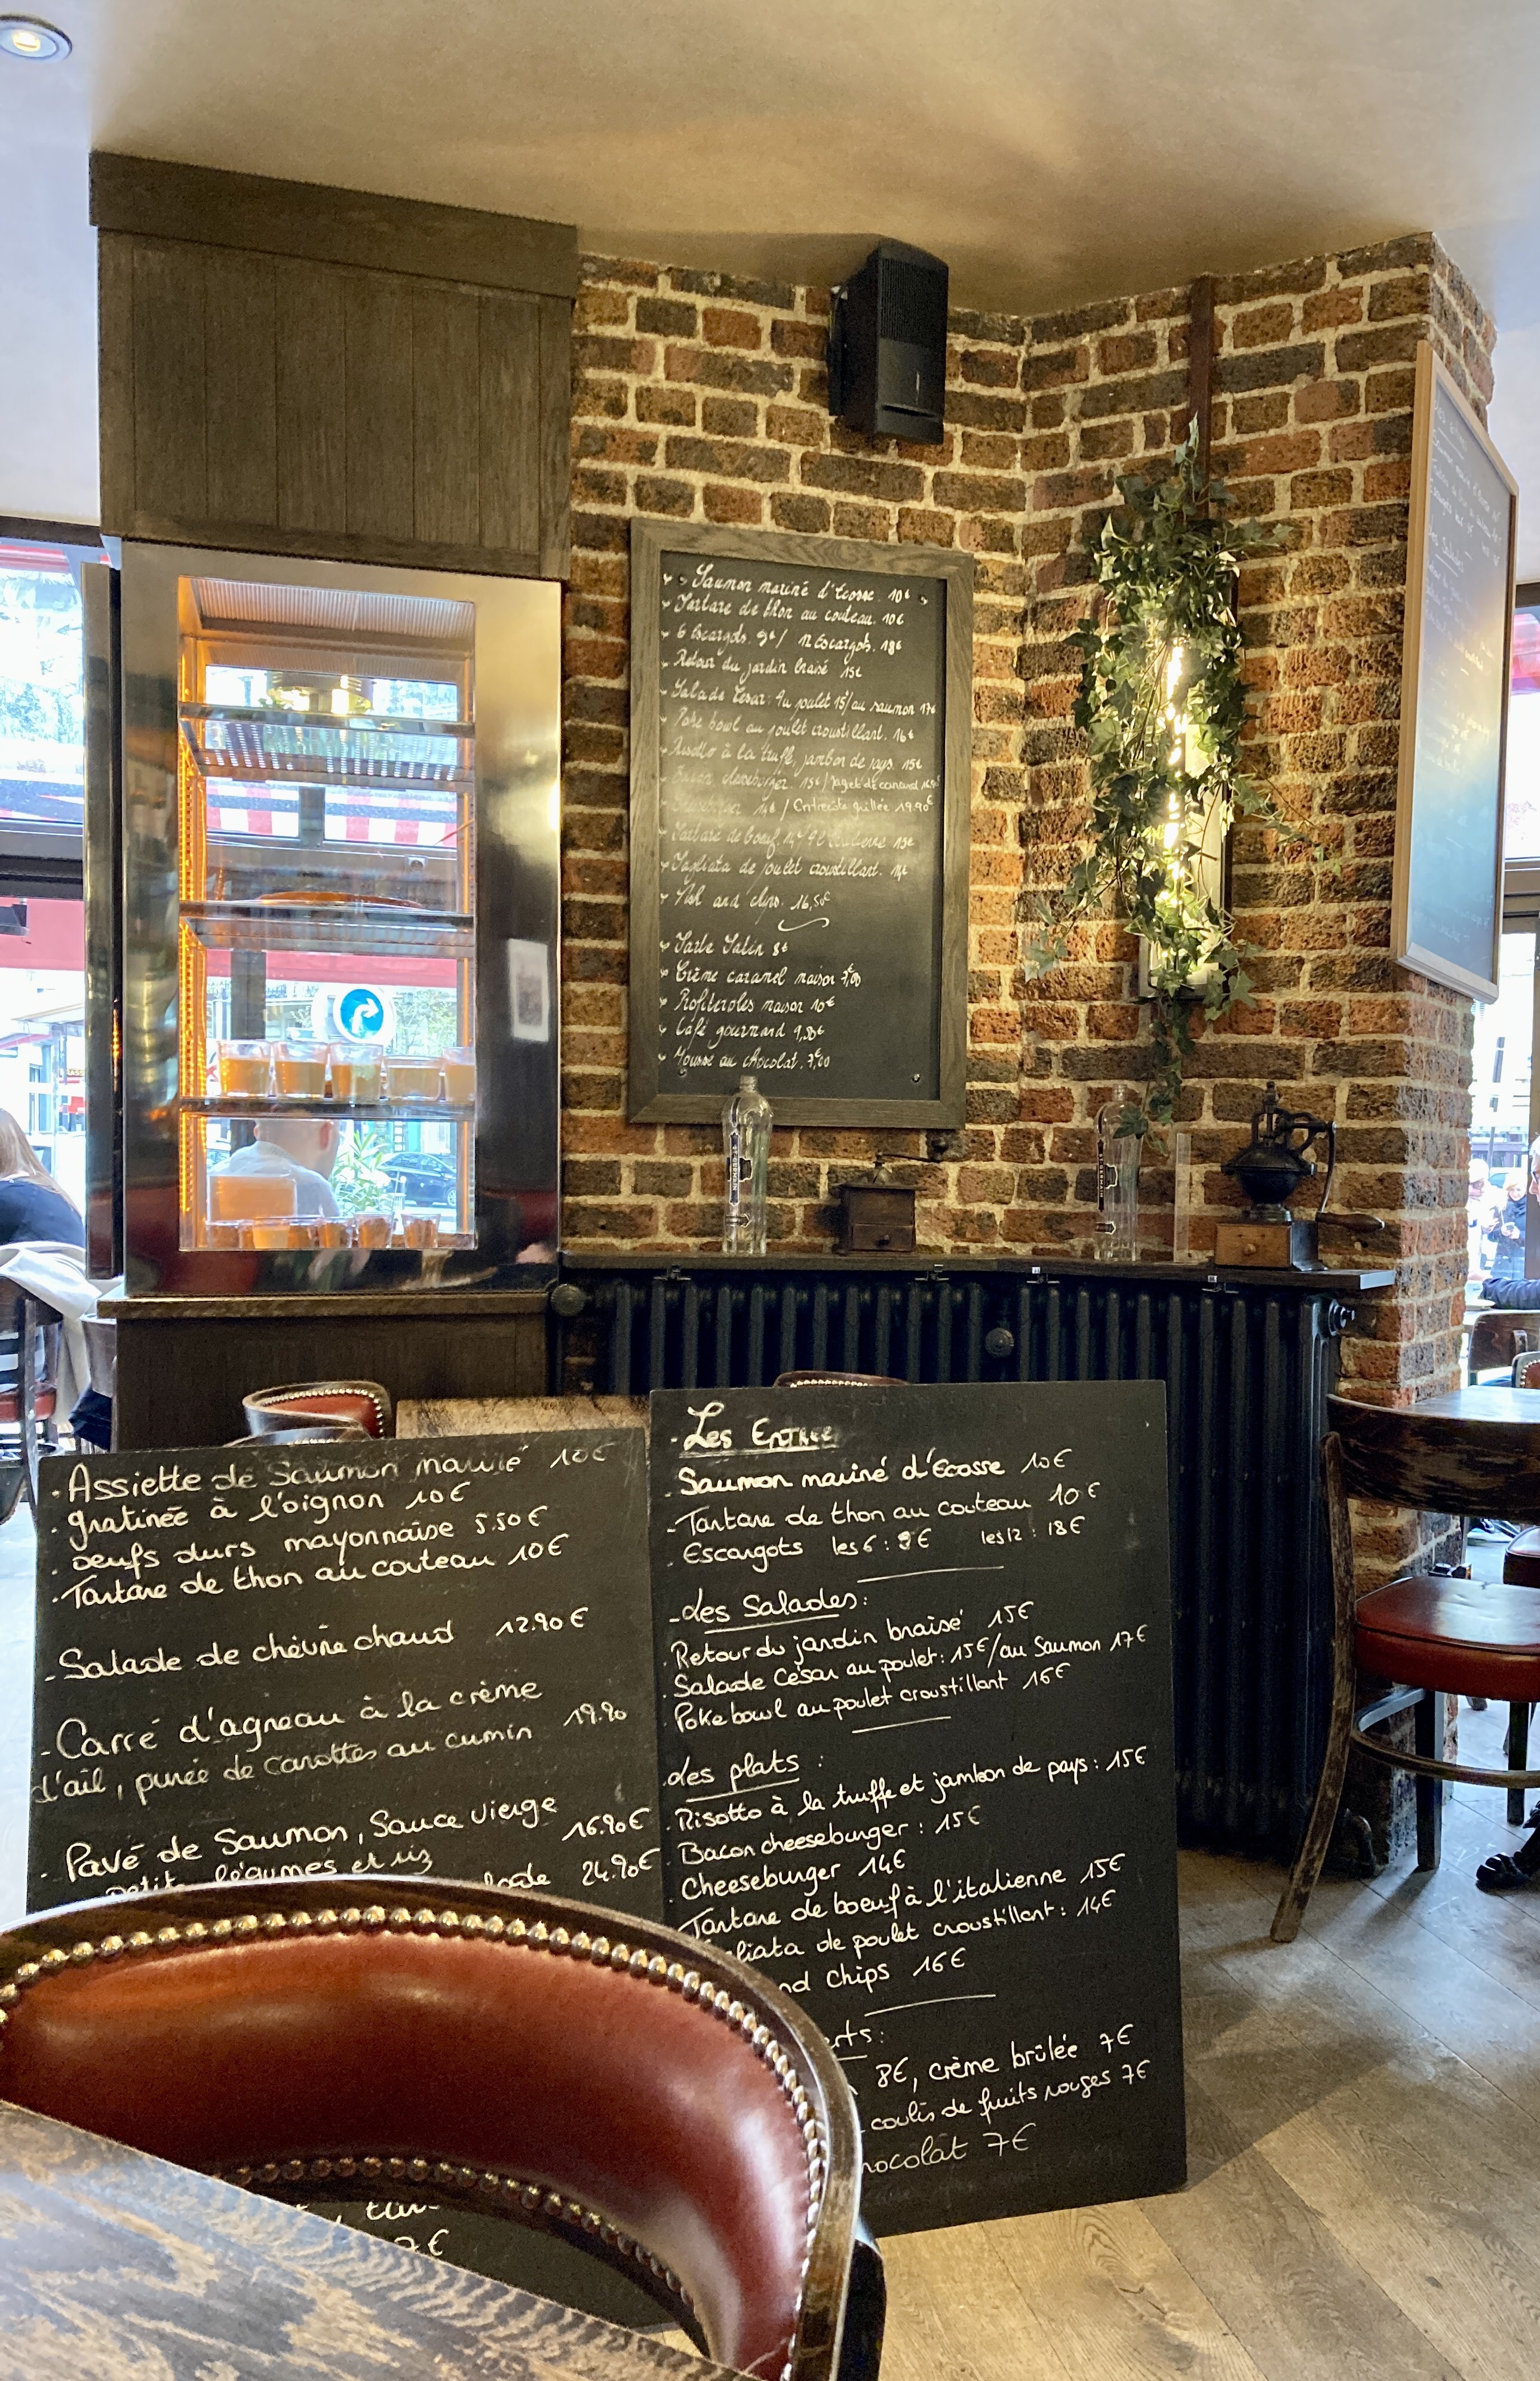 Saumon mariné d'Ecosse. 10€
Tartare de thon au couteau. 10€
6 Escargots. 9€ / 12 Escargots. 18€
Retour du jardin braisé 15€
Salade Cesar: Au poulet 15/au saumon 17€
Poke bowl au poulet croustillant. 16€
Risotto à la truffe, jambon de pays. 15€
Bacon cheeseburger. 15€ /
14€ / Entrecôte grillée 19.90€
Tartare de boeuf. 15€
Tagliata de poulet croustillant. 14€
Fish and chips. 16,50€
Tarte Tatin 8€
Crème caramel maison 7,00
Profiteroles maison 10€
Café gourmand
Mousse au chocolat. 7,00
- Assiette de Saumon mariné 10€
- gratinée à l'oignon 10€
- oeufs durs mayonnaise 5.50€
- Tartare de thon au couteau 10€
- Salade de chèvre chaud 12.90€
- Carré d'agneau à la crème
d'ail, purée de carottes au cumin 19.90
- Pavé de Saumon, Sauce vierge
petits légumes et riz 16.90€
24.90€
7€
- Les Entrée
- Saumon mariné d'Ecosse 10€
- Tartare de thon au couteau 10€
- Escargots les 6 : 9€ les 12 : 18€
- Les Salades:
Retour du jardin braisé 15€
Salade César au poulet: 15€/au Saumon 17€
Poke bowl au poulet croustillant 16€
Les plats :
Risotto à la truffe et jambon de pays : 15€
Bacon cheeseburger : 15€
Cheeseburger 14€
Tartare de boeuf à l'italienne 15€
liata de poulet croustillant : 14€
nd Chips 16€
rts:
8€, crème brûlée 7€
coulis de fruits rouges 7€
hocolat 7€